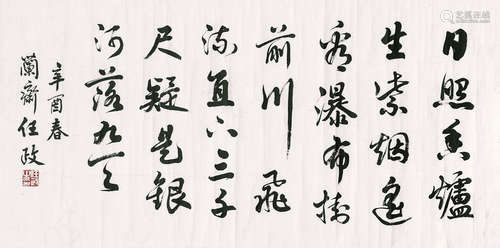 日照香爐
生紫烟遙
看瀑布掛
前川飛
流直下三千
尺疑是銀
河落九天
辛酉春
蘭齋任政
艺狐在线